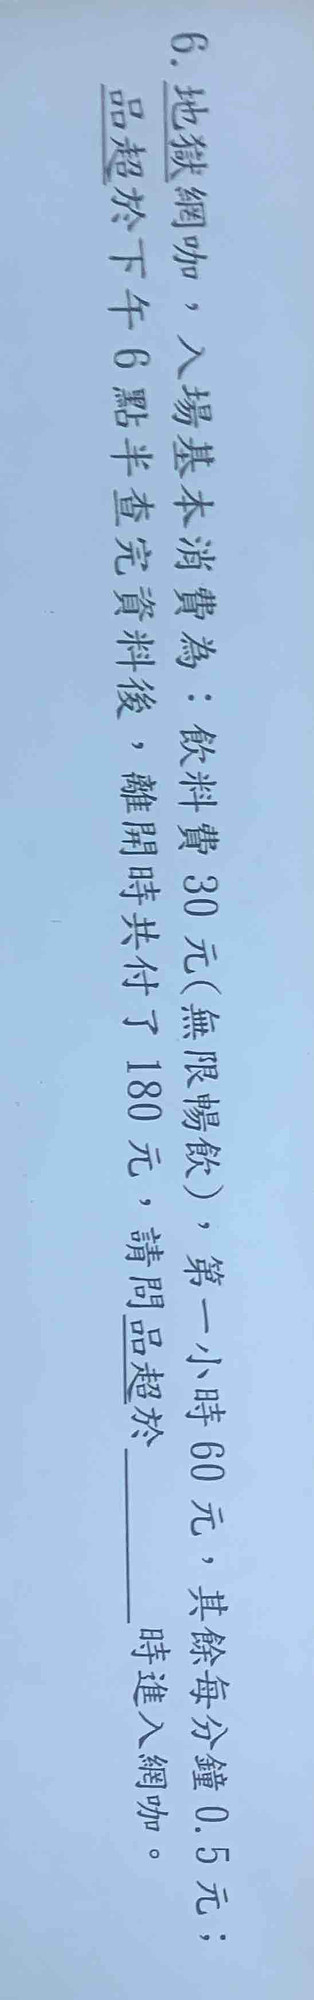 6. 地獄網咖，入場基本消費為：飲料費 30 元(無限暢飲)，第一小時 60 元，其餘每分鐘 0.5 元；
品超於下午 6 點半查完資料後，離開時共付了 180 元，請問品超於________時進入網咖。